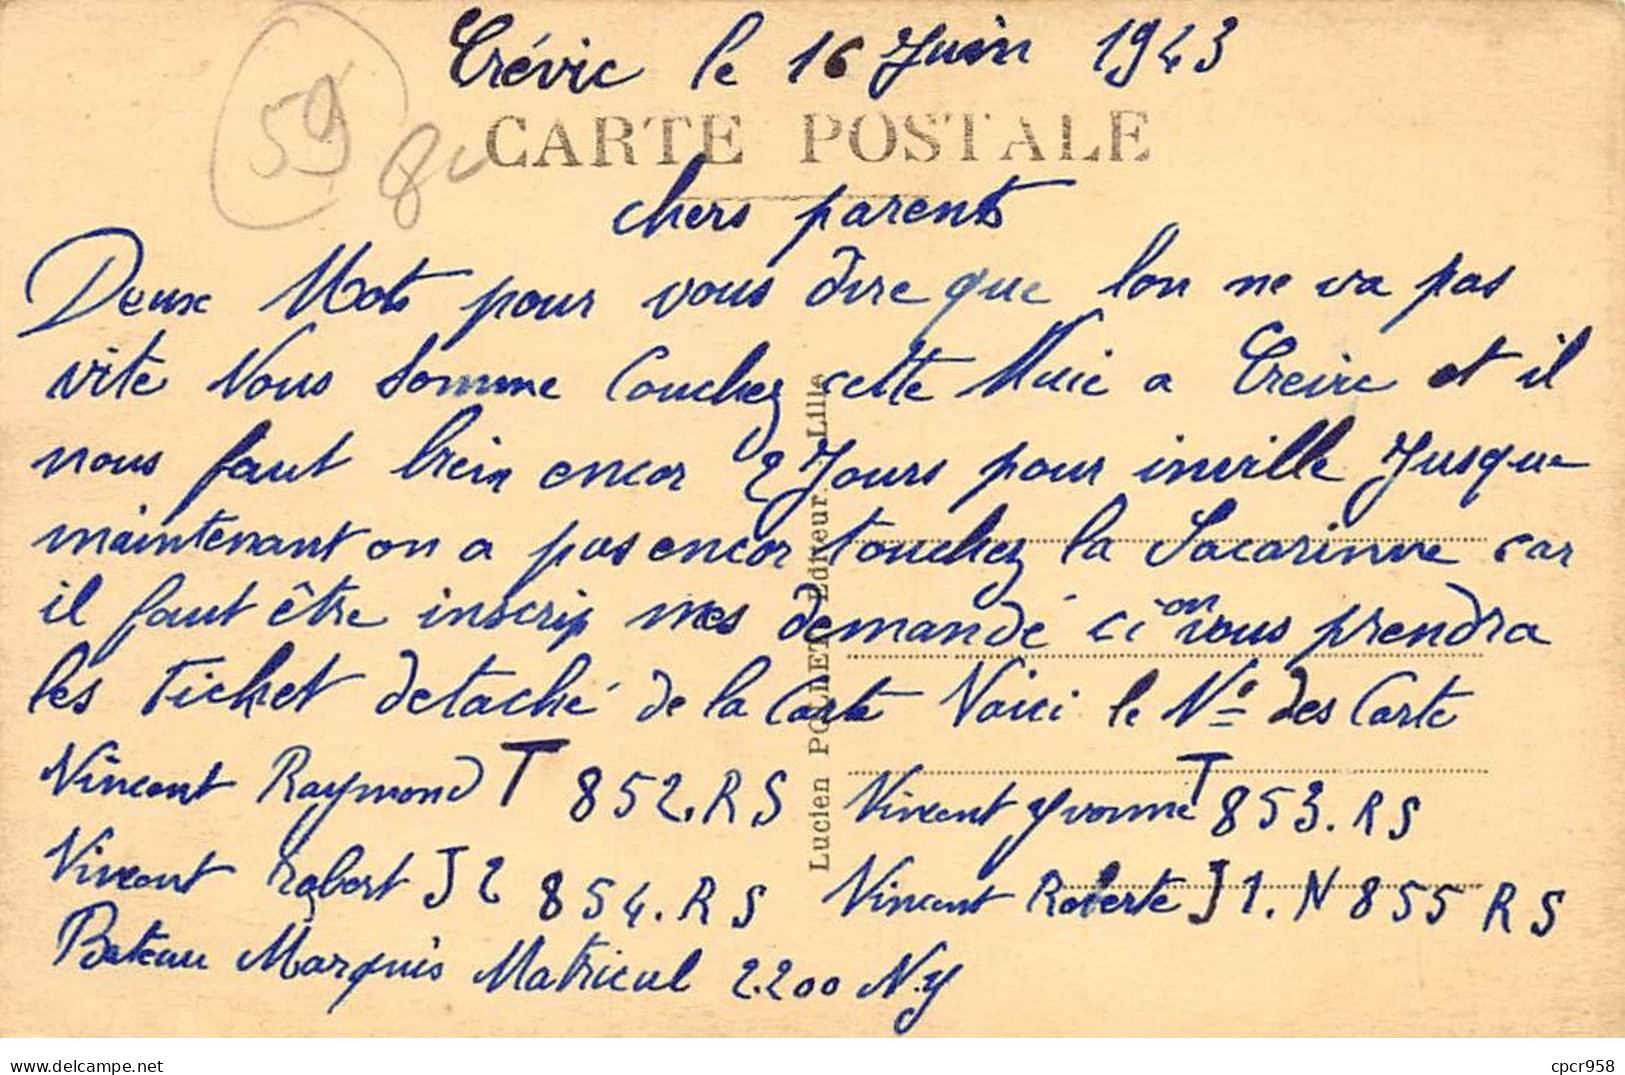 Crévic le 16 Juin 1943
59
CARTE POSTALE
chers parents
Deux Mots pour vous dire que lon ne va pas
vite Nous somme Couchez cette Nuic a Creivic et il
nous faut brein encor 2 Jours pour inville Jusque
maintenant on a pas encor touchez la Sacarinne car
il faut être inscrip mes demandé ci on vous prendra
les Ticket detaché de la Carte Voici le Nº des Carte
Vincent Raymond T 852.RS Vincent Yvonne T 853.RS
Vincent Robert J2 854.RS Vincent Roberte J1.N 855 RS
Bateau Marquis Matricul 2.200 N.y
Lucien POLLET Editeur. Lille
www.delcampe.net
cpcr958